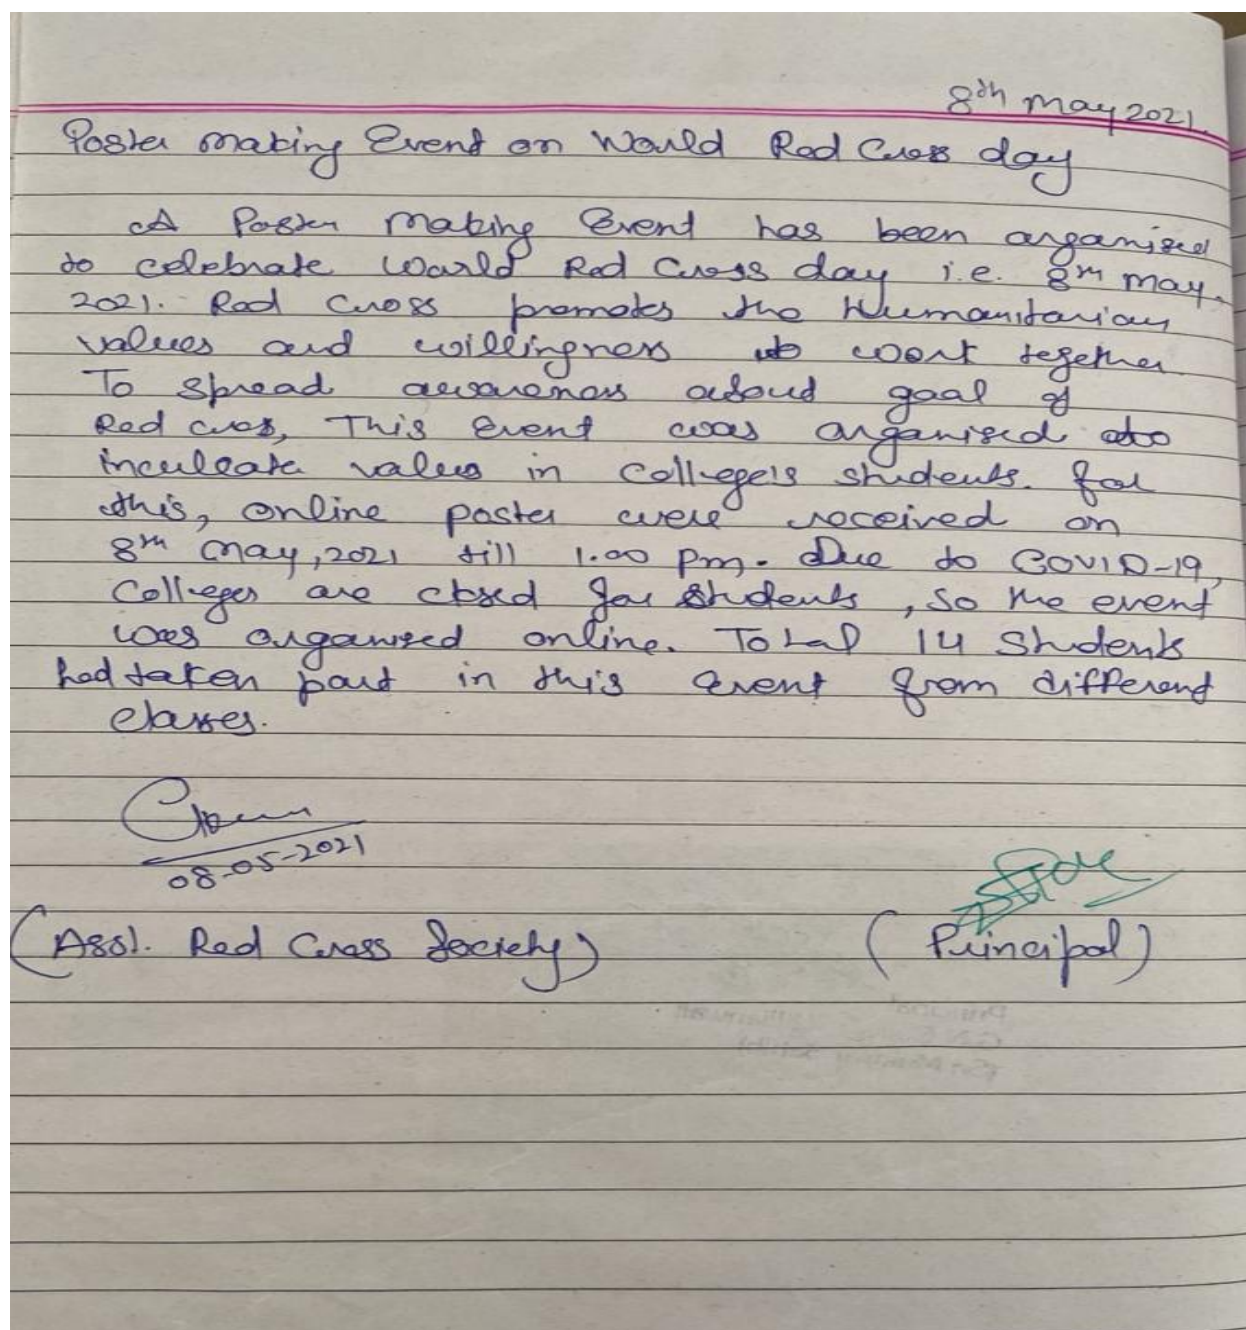 8th may 2021.
Poster making Event on World Red Cross day
A Poster Making Event has been organised
to celebrate World Red Cross day i.e. 8th may,
2021. Red Cross promotes the Humanitarian
values and willingness to work together
To spread awareness about goal of
Red cross, This event was organised to
inculcate values in College's students. for
this, online poster were received on
8th may, 2021 till 1.00 pm. Due to COVID-19,
Colleges are closed for students, so the event
was organised online. Total 14 students
had taken part in this event from different
classes.
08-05-2021
(Asst. Red Cross Society)
(Principal)